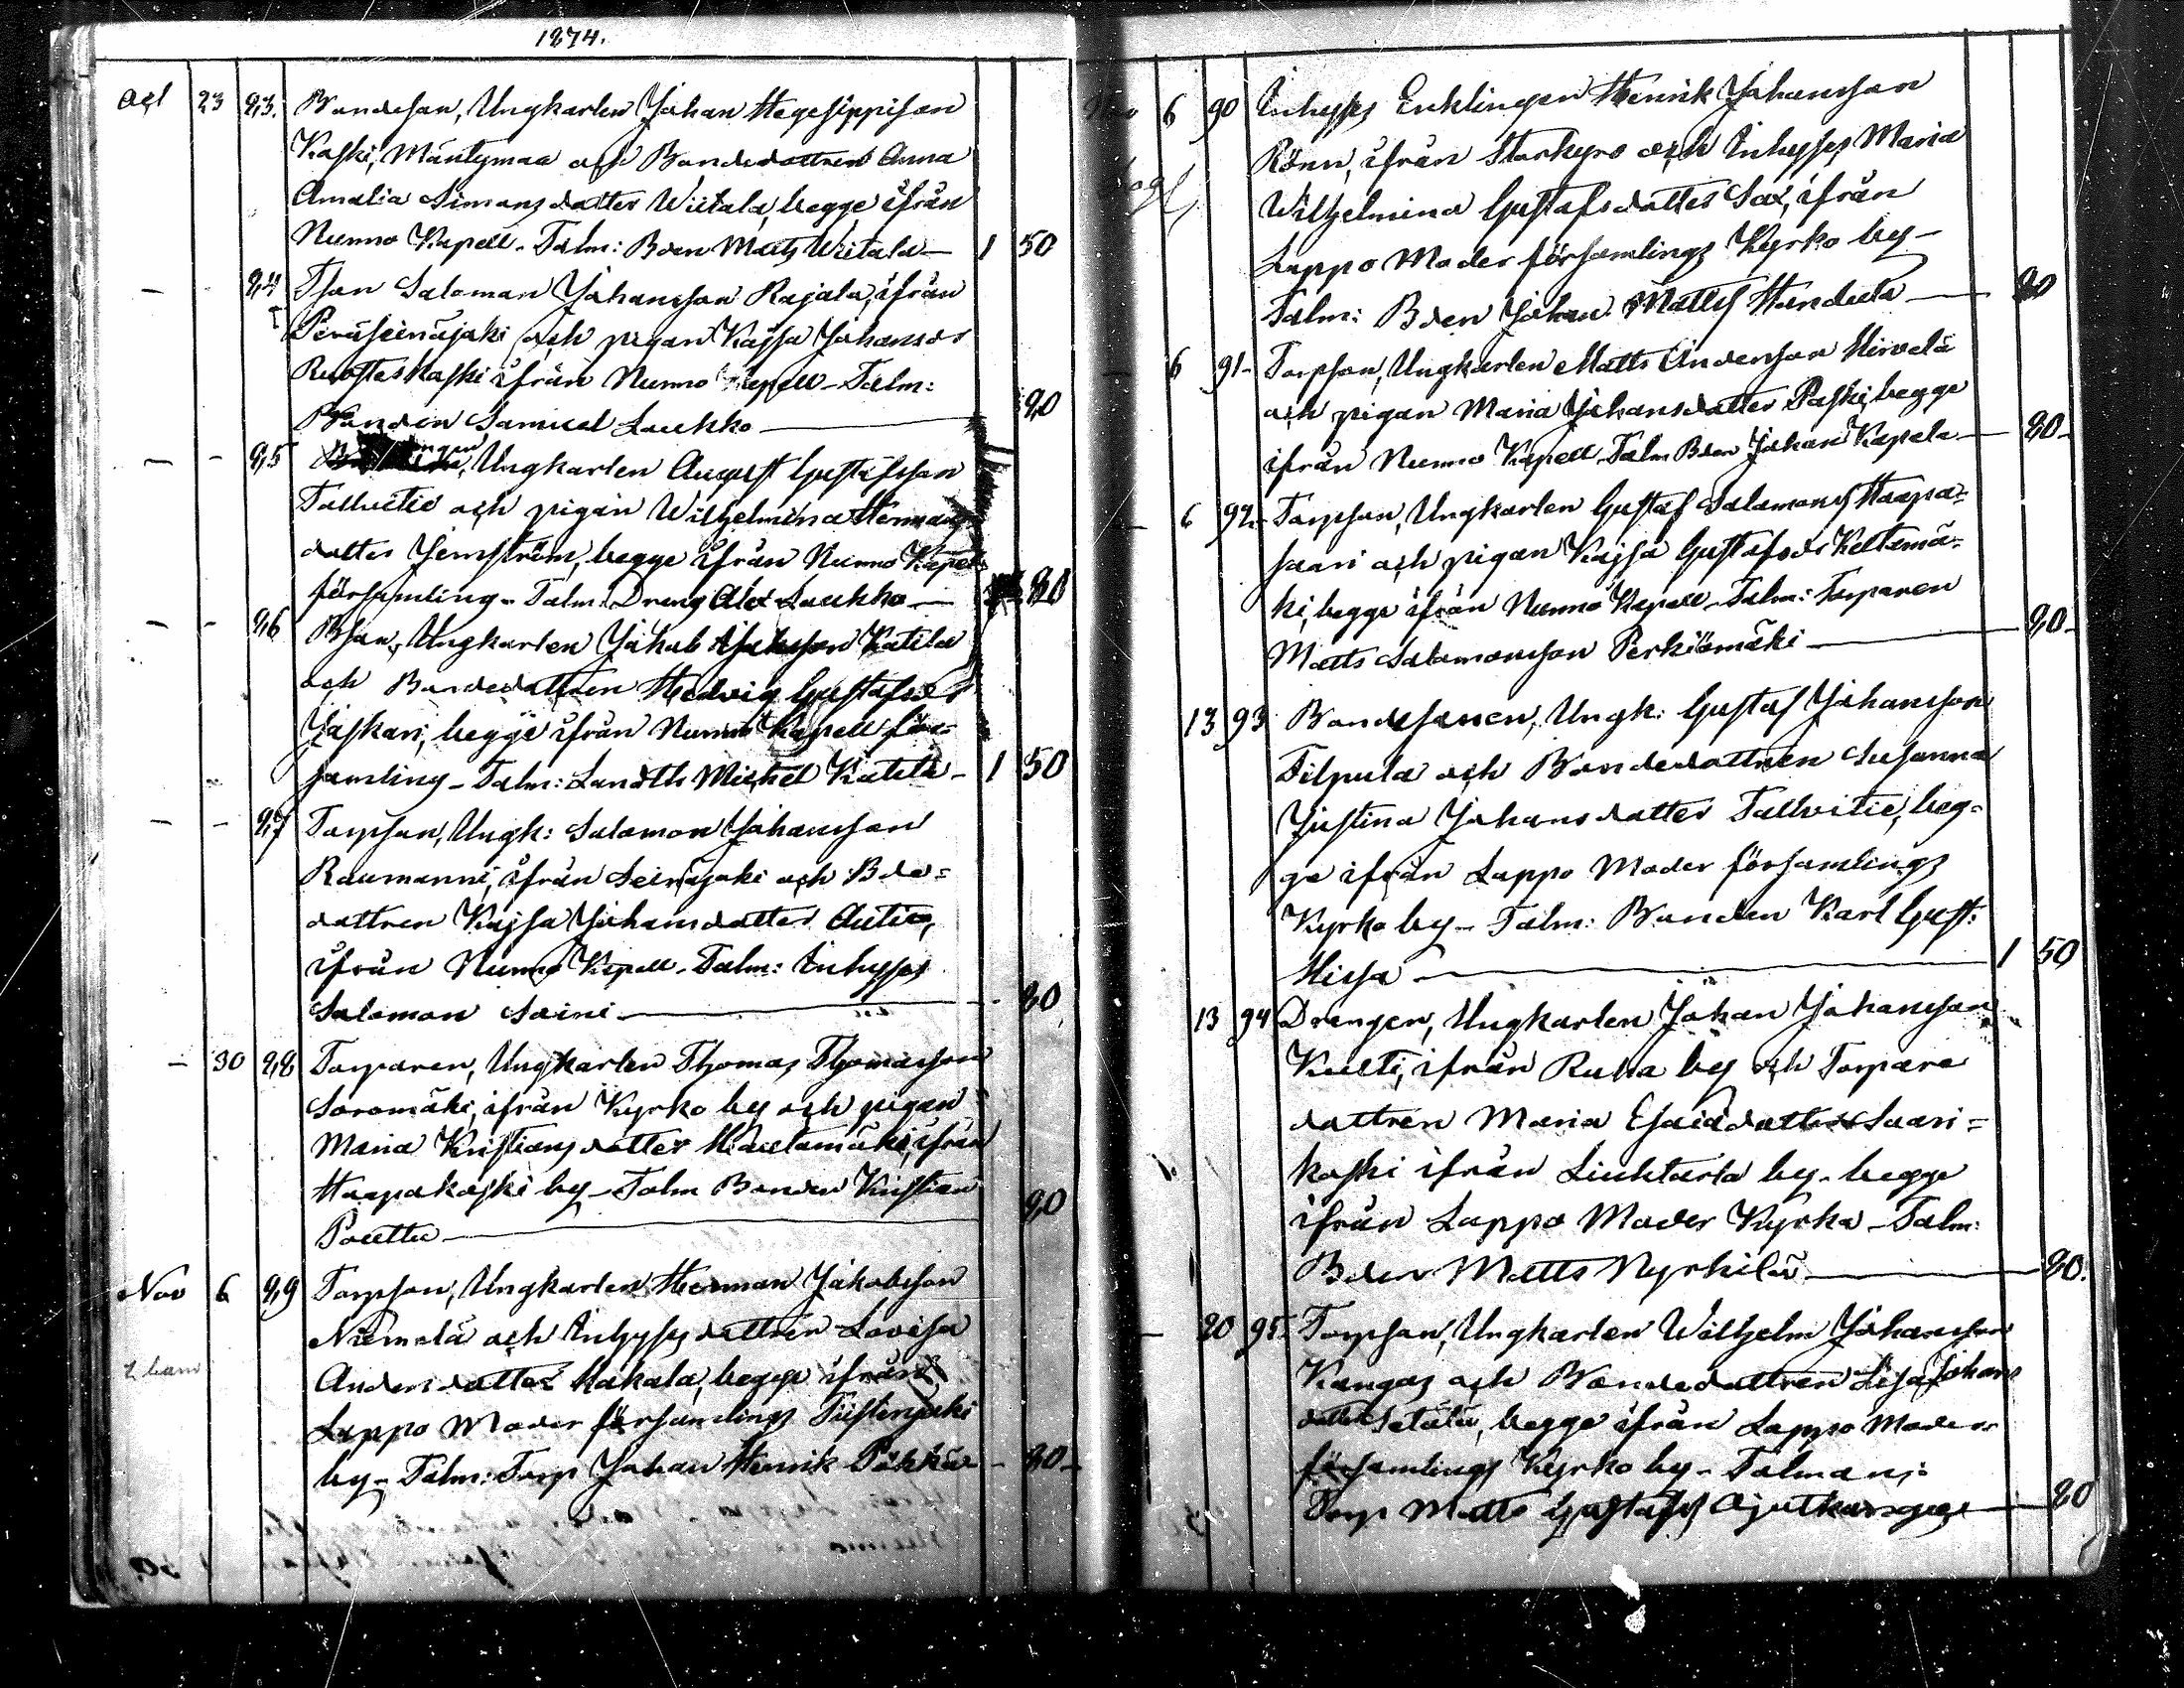 1874.
Oct 23 83. Bondeson, Ungkarlen Johan Hegesippison
Koski, Mäntymaa och Bondedottren Anna
Amalia Simonsdotter Wiitala, begge ifrån
Nurmo Kapell. Talm: Bden Matts Wiitala — 1 50
— 84 Tson Salomon Johansson Rajala, ifrån
Peräseinäjoki och pigan Kajsa Johansdr
Ruostekoski ifrån Nurmo Kapell - Talm:
Bonden Samuel Laukko — 80
— - 85 Ungkarlen August Gustafsson
Tallvitie och pigan Wilhelmina Hermans
dotter Jernström, begge ifrån Nurmo Kapell
församling - Talm: Dreng Alex Laukko — 80
— - 86 Bson, Ungkarlen Jakob Katila
och Bondedottren Hedvig Gustafsdr
Jaskari, begge ifrån Nurmo Kapell för=
samling - Talm: Michel Katila - 1 50
— - 87 Torpson, Ungk: Salomon Johansson
Raumanni, ifrån Seinäjoki och Bde=
dottren Kajsa Johansdotter
ifrån Nurmo Kapell. Talm: Inhyses
Salomon Saini — 80
— 30 88 Torparen, Ungkarlen Thomas Thomasson
Soromäki, ifrån Kyrko by och pigan
Maria Kristiansdotter Hautamäki, ifrån
Haapakoski by - Talm Bonden Kristian
Pouttu — 80
Nov 6 89 Torpson, Ungkarlen Herman Jakobsson
Niemelä och Inhysesdottren Lovisa
Andersdotter Kakala, begge ifrån
Lappo Moder församlings Tiistenjoki
by - Talm: Torp Johan Henrik - 80 -
Nov 6 90 Inhyses Enklingen Henrik Johansson
Rönn, ifrån Storkyro och Inhyses Maria
Wilhelmina Gustafsdotter Sax, ifrån
Lappo Moder församlings Kyrko by -
Talm: Bden Johan Matts — 80
— 6 91- Torpson, Ungkarlen Matts Andersson Hirvelä
och pigan Maria Johansdotter Paski, begge
ifrån Nurmo Kapell. Talm Bden Johan Kapala — 80-
— 6 92- Torpson, Ungkarlen Gustaf Salomons Haapa=
saari och pigan Kajsa Gustafsdr Keltamä=
ki, begge ifrån Nurmo Kapell - Talm: Torparen
Matts Salomonsson Perkiömäki — 80-
13 93 Bondesonen, Ungk: Gustaf Johansson
Filpula och Bondedottren Susanna
Justina Johansdotter Tallvitie, beg=
ge ifrån Lappo Moder församlings
Kyrko by - Talm: Bonden Karl Gust:
Hissa — 1 50
13 94 Drengen, Ungkarlen Johan Johansson
ifrån Ruha by och Torpare
dottren Maria Esaiadotter Saari=
koski ifrån Liuhtari by - begge
ifrån Lappo Moder Kyrka - Talm:
Bden Matts Nyrhilä — 80.
— 20 95. Torpson, Ungkarlen Wilhelm Johansson
Kangas och Bondedottren Lisa Johans
dotter Setälä, begge ifrån Lappo Moder
församlings Kyrko by - Talman:
Torp Matts Gustafs — 80